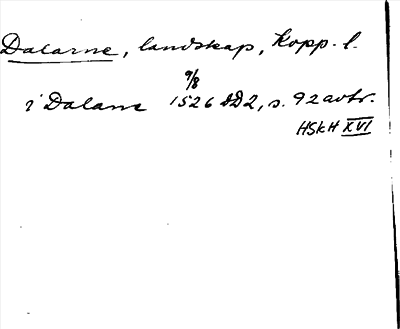 Dalarne, landskap, Kopp. l.
9/8
i Dalane 1526 DD2, s. 92 avtr.
HSkH XVI